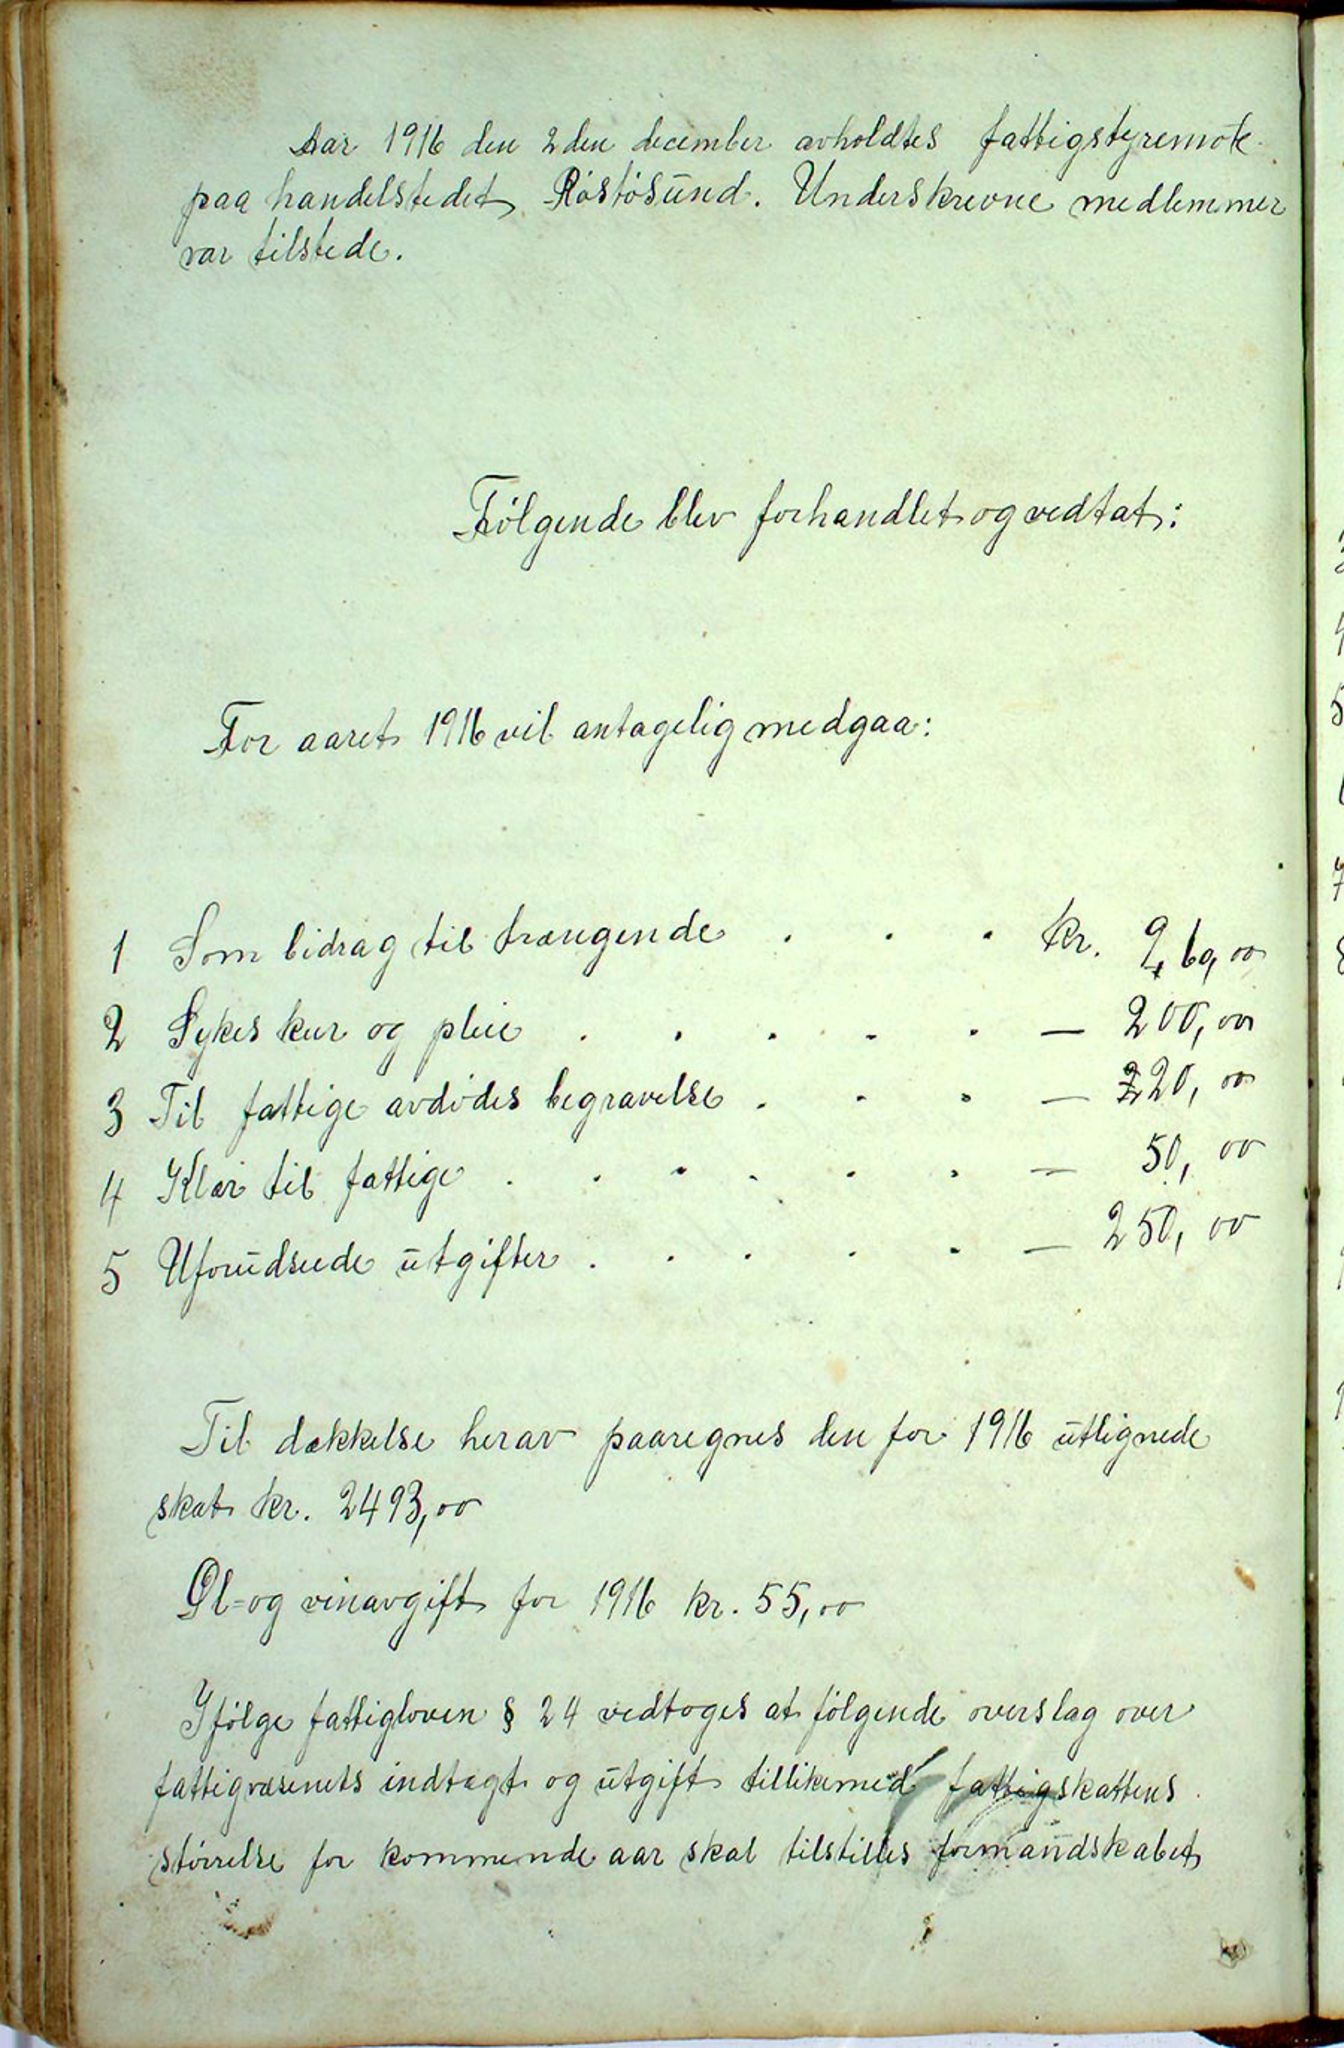 Aar 1916 den 2den december avholdtes fattigstyremöte
paa handelstedet Röstösund. Underskrevne medlemmer
var tilstede.
Følgende blev forhandlet og vedtat:
For aaret 1916 vil antagelig medgaa:
1 Som bidrag til trængende . . . kr.
2 Sykes kur og pleie . . . . . — 200,00
3 Til fattige avdødes begravelse . . . — 220,00
4 Klær til fattige . . . . . . — 50,00
5 Uforudseede utgifter . . . . . — 250,00
Til dækkelse herav paaregnes den for 1916 utlignede
skat kr. 2493,00
Øl=og vinavgift for 1916 kr. 55,00
Ifølge fattigloven § 24 vedtoges at følgende overslag over
fattigvæsenets indtægt og utgift tillikemed fattigskattens
størrelse for kommende aar skal tilstilles formandskabet